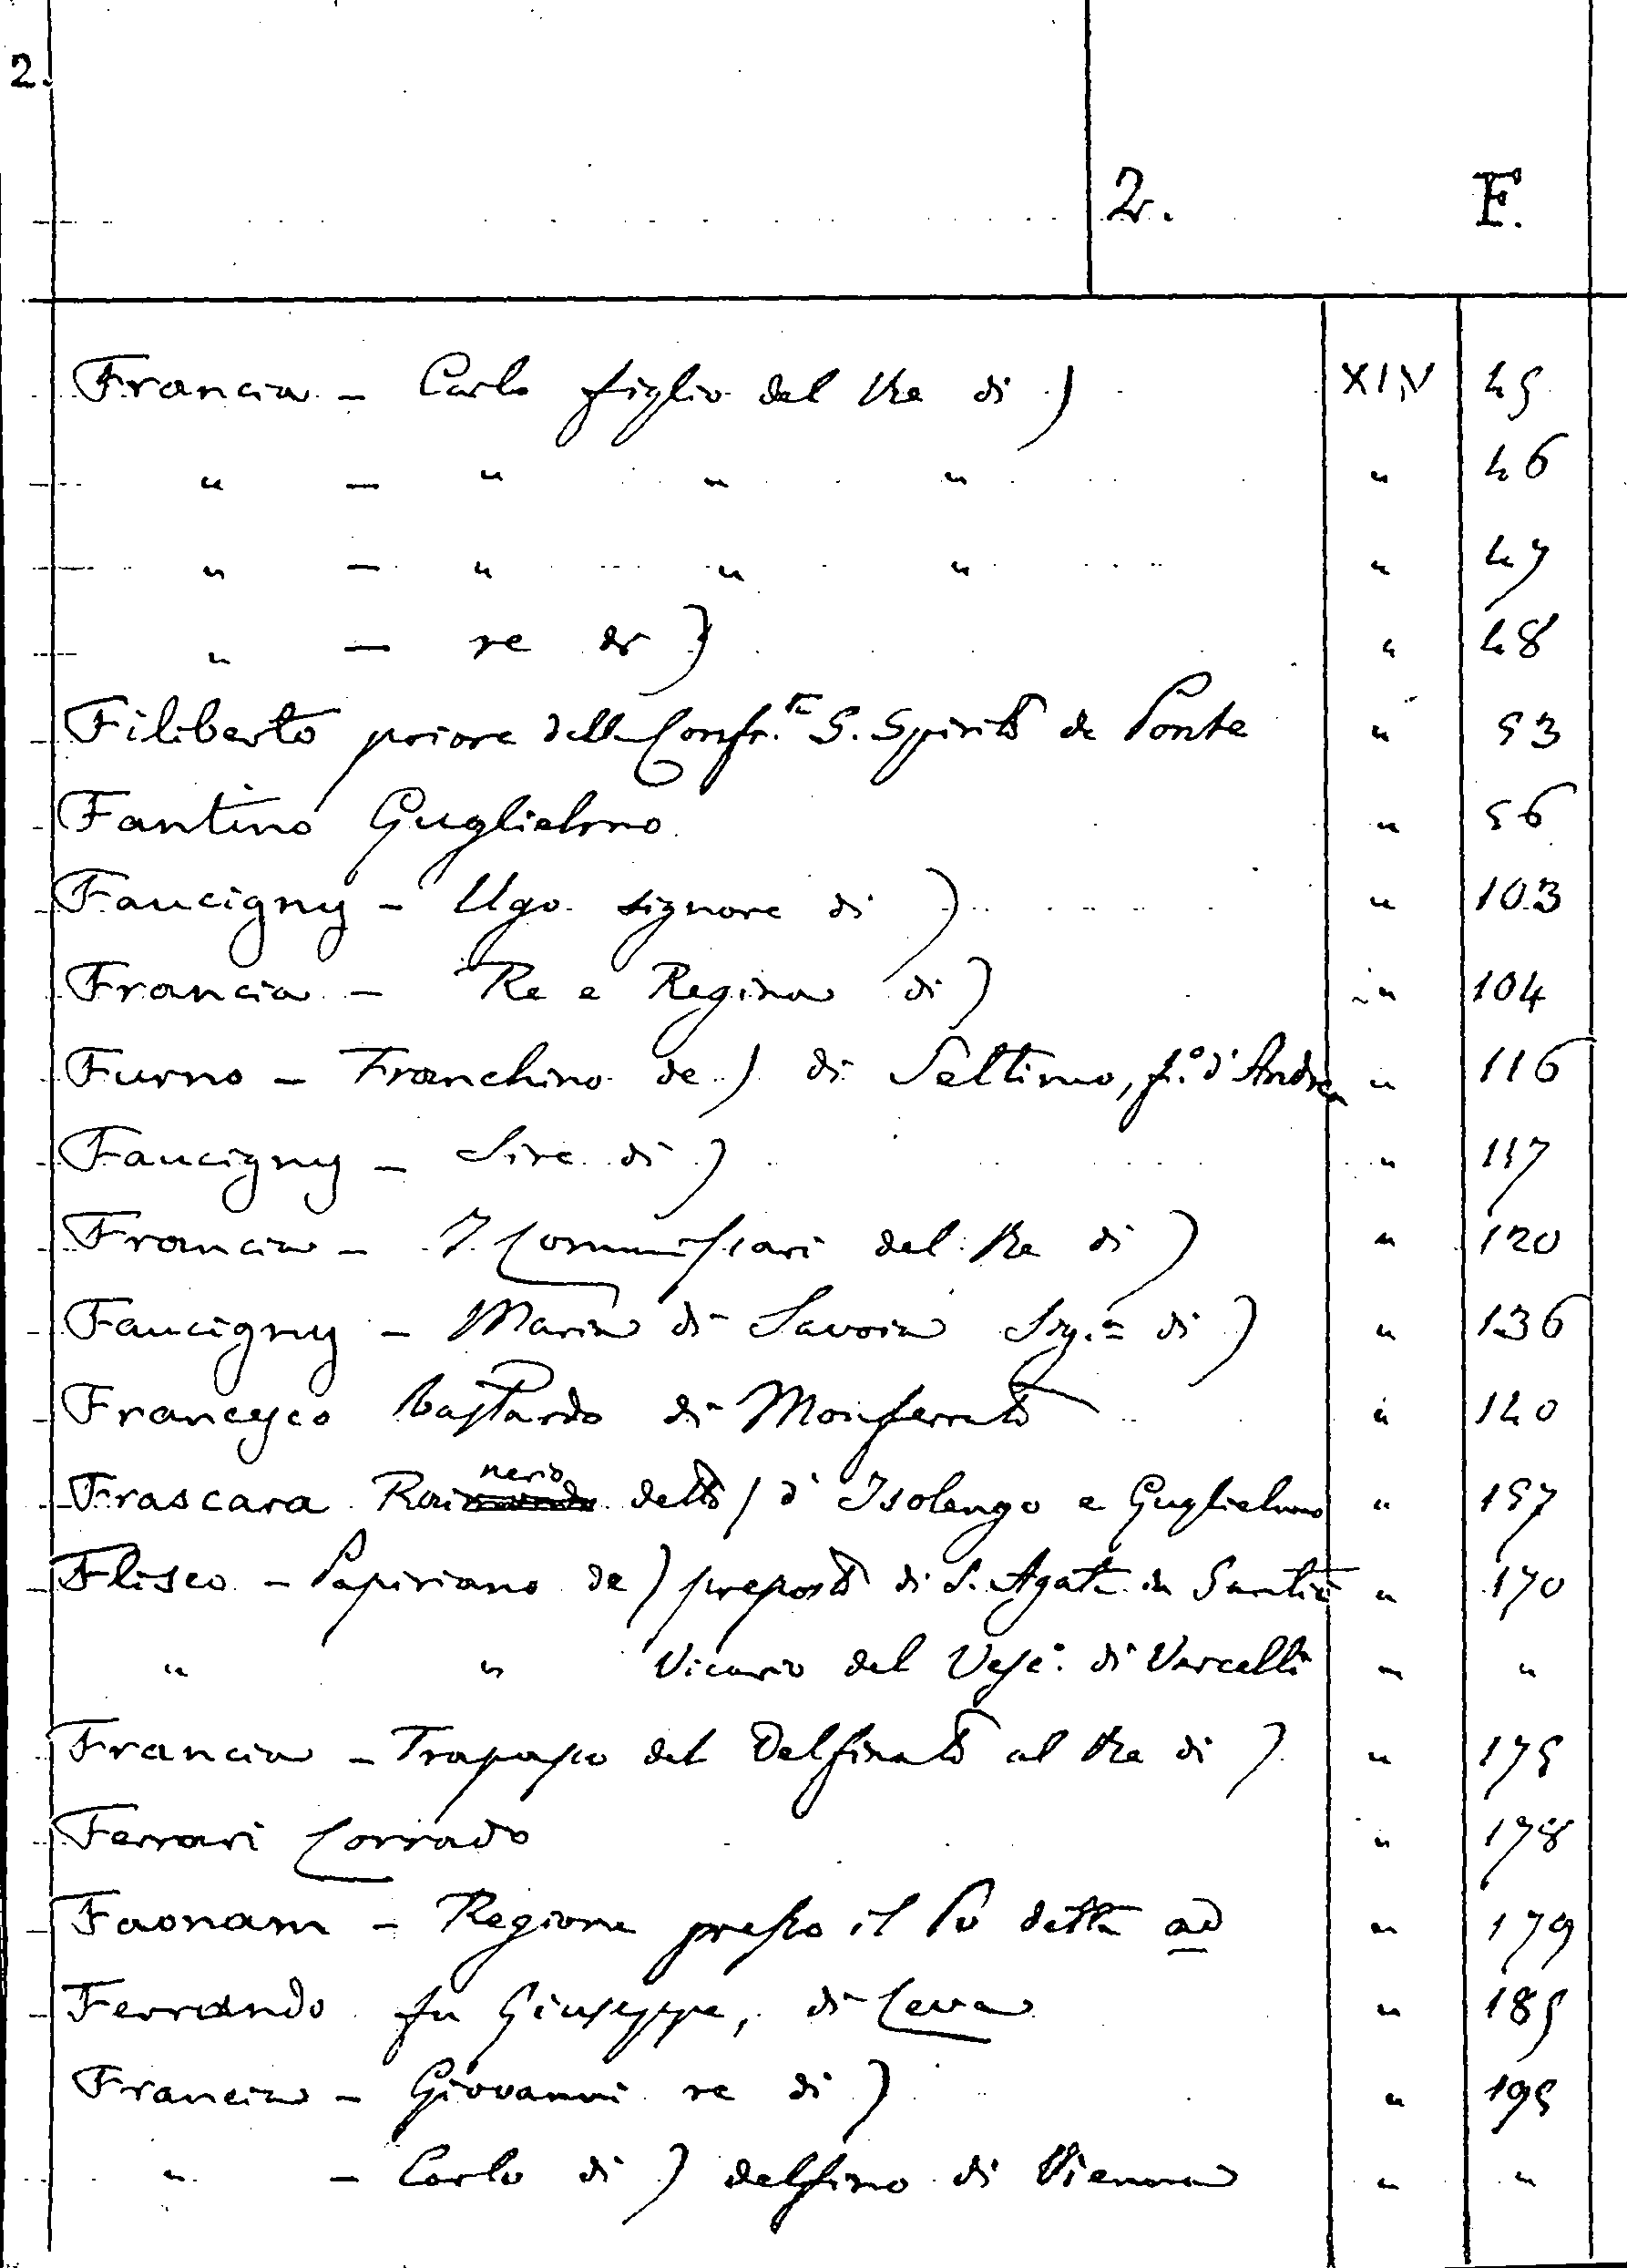 2.
2. F.
Francia - Carlo figlio del Re di ) XIV 45
" - " " " " 46
" - " " " " 47
" - re di ) " 48
Filiberto priore della Confr.ta S. Spirito de Ponte " 53
Fantino Guglielmo " 56
Faucigny - Ugo signore di ) " 103
Francia - Re e Regina di ) " 104
Furno - Franchino de ) di Settimo, f.o d'Andrea " 116
Faucigny - Sire di ) " 117
Francia - I Commissari del Re di ) " 120
Faucigny - Maria di Savoia Sig.a di ) " 136
Francesco bastardo di Monferrato " 140
Frascara Rainerio detto / d' Isolengo e Guglielmo " 157
Flisco - Papiriano de ) preposto di S. Agata in Santià " 170
" " Vicario del Vesc.o di Vercelli " "
Francia - Trapasso del Delfinato al Re di ) " 175
Ferrari Corrado " 178
Faonam - Regione presso il Po detta ad " 179
Ferrando fu Giuseppe, di Ceva " 185
Francia - Giovanni re di ) " 195
" - Carlo di ) delfino di Vienna " "